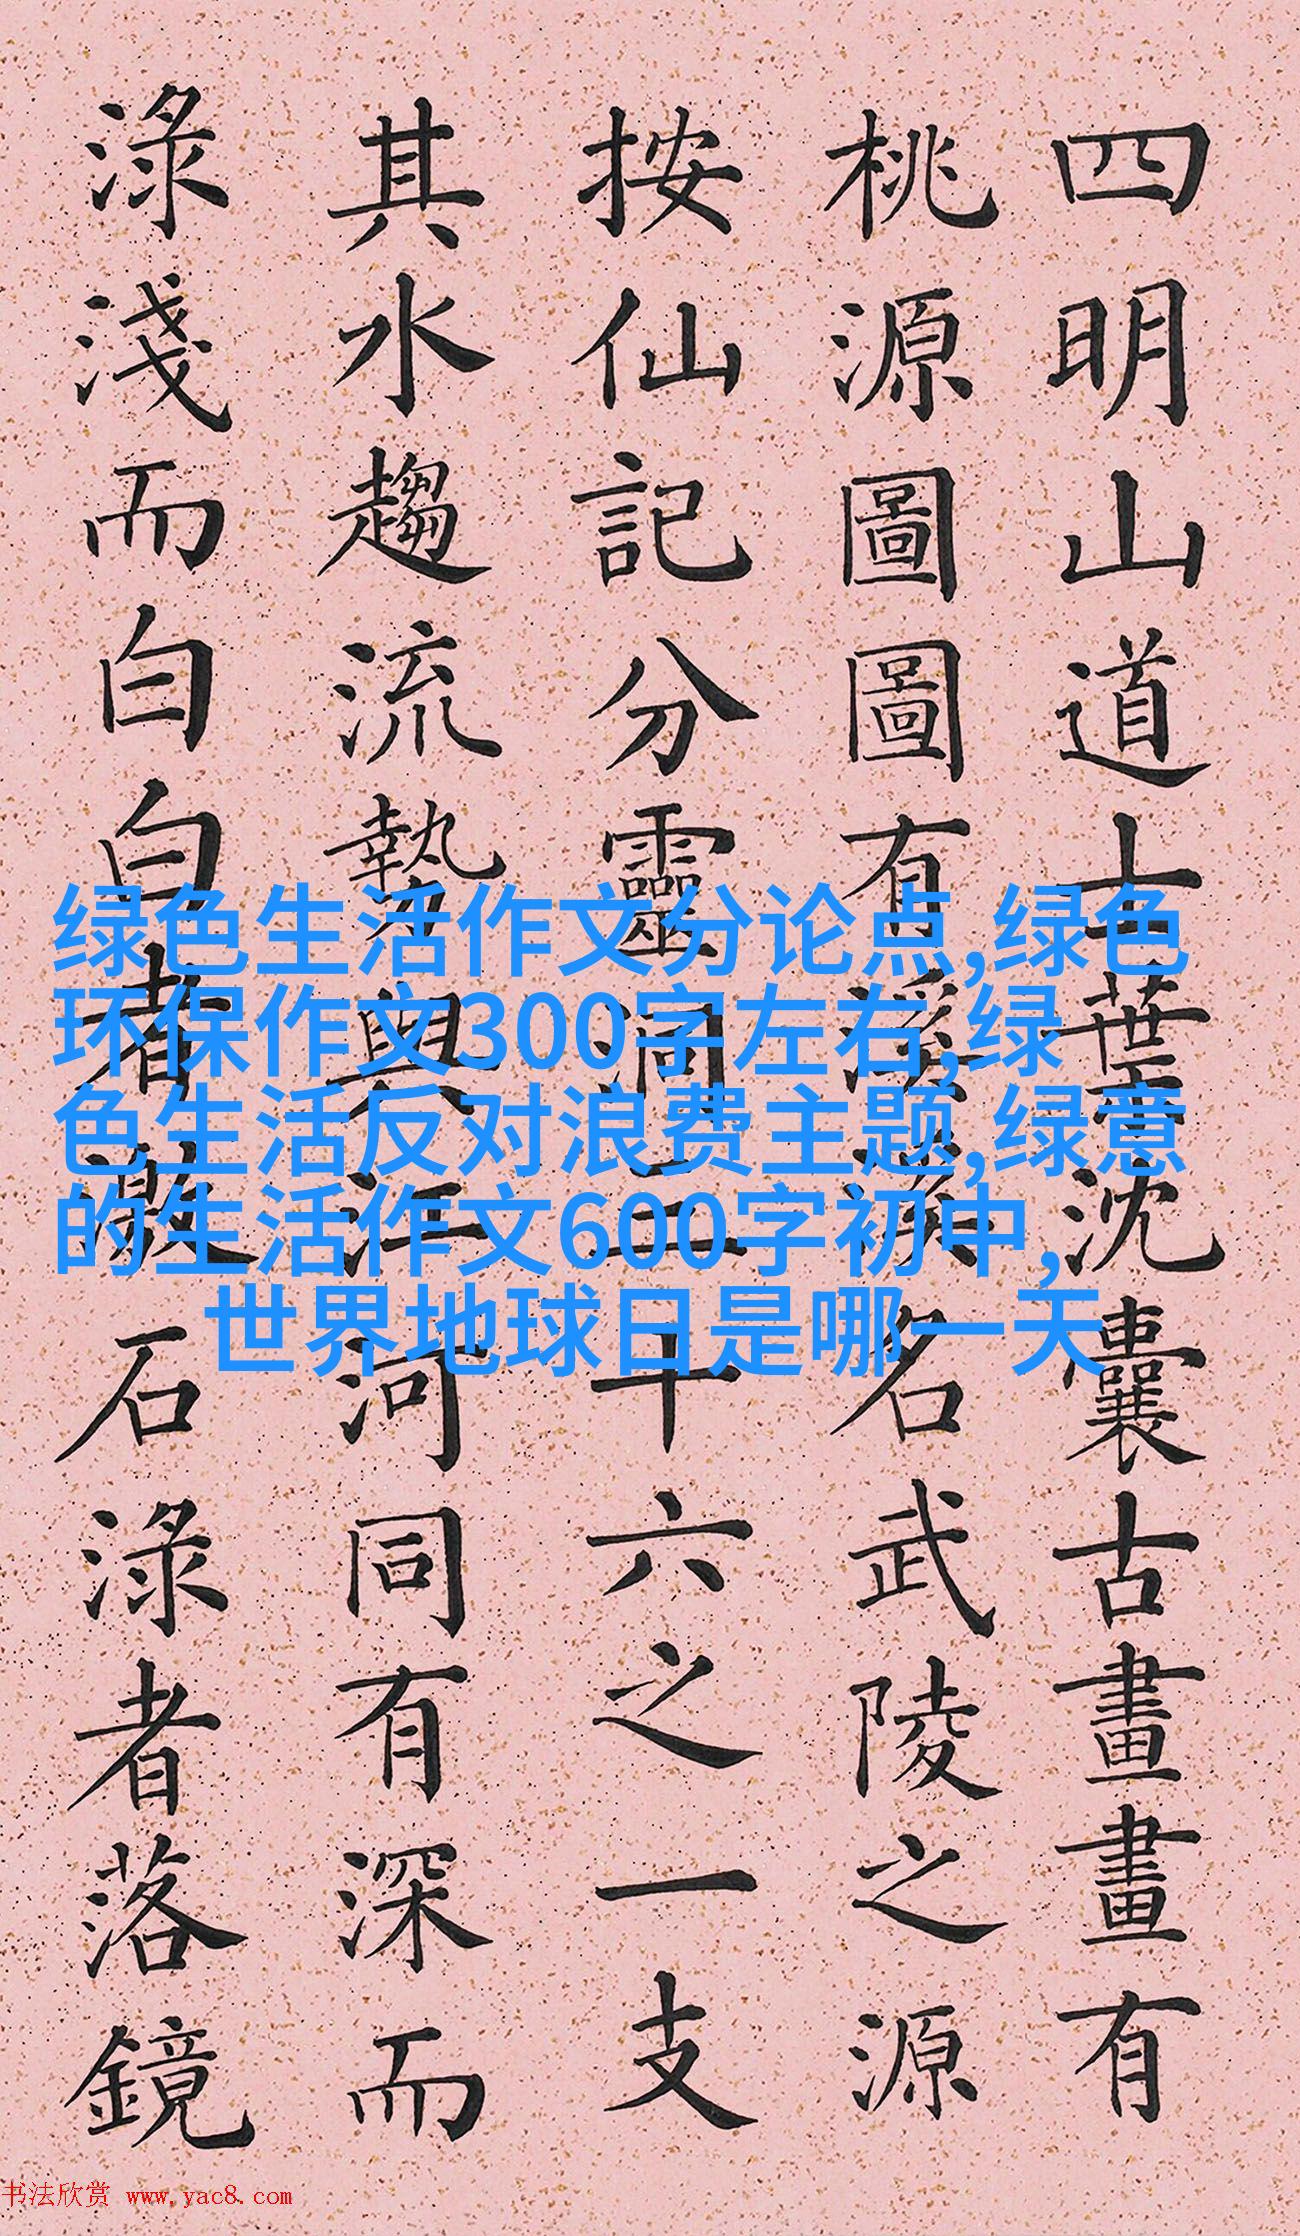 四明山道士葉沈囊古畫畫有
桃源圖圖有溪溪名武陵之源
按仙記分靈洞三十六之一支
其水趨流勢與江河同有深而
淥淺而白白者激石淥者落鏡
绿色生活作文分论点,绿色
环保作文300字左右,绿
色生活反对浪费主题,绿意
的生活作文600字初中,
世界地球日是哪一天
书法欣赏 www.yac8.com